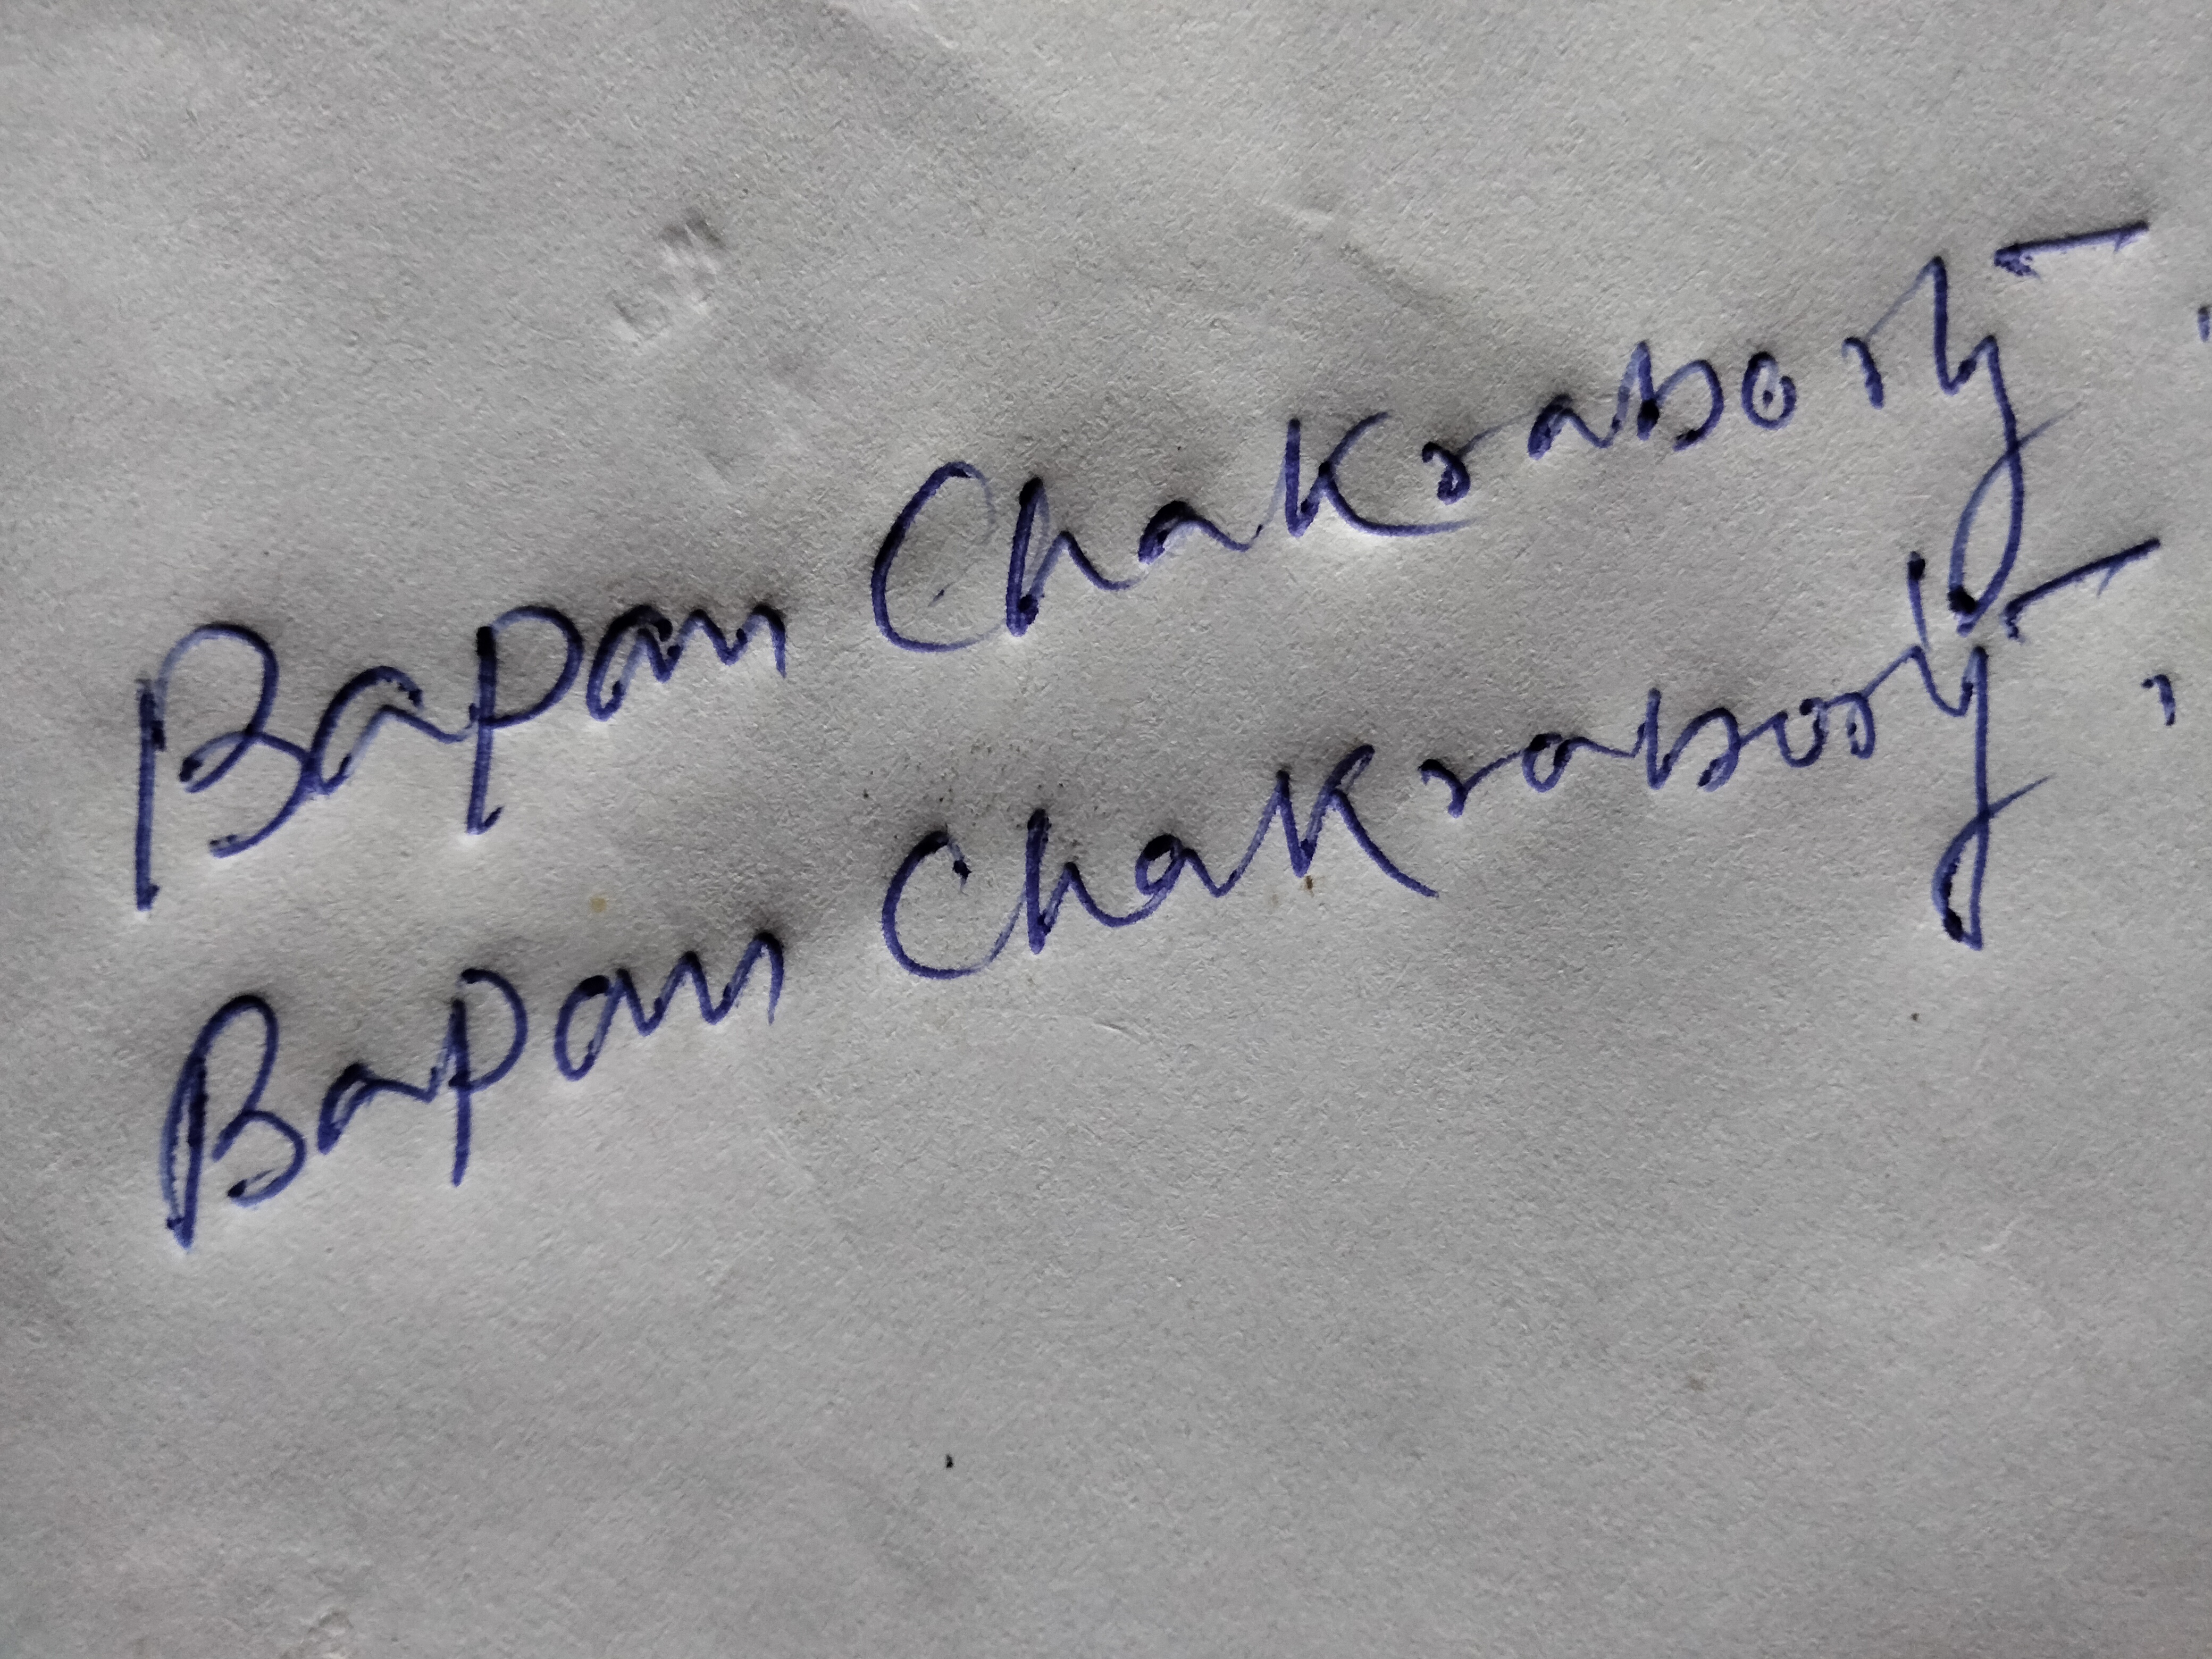 Bapan Chakraborty
Bapan Chakraborty